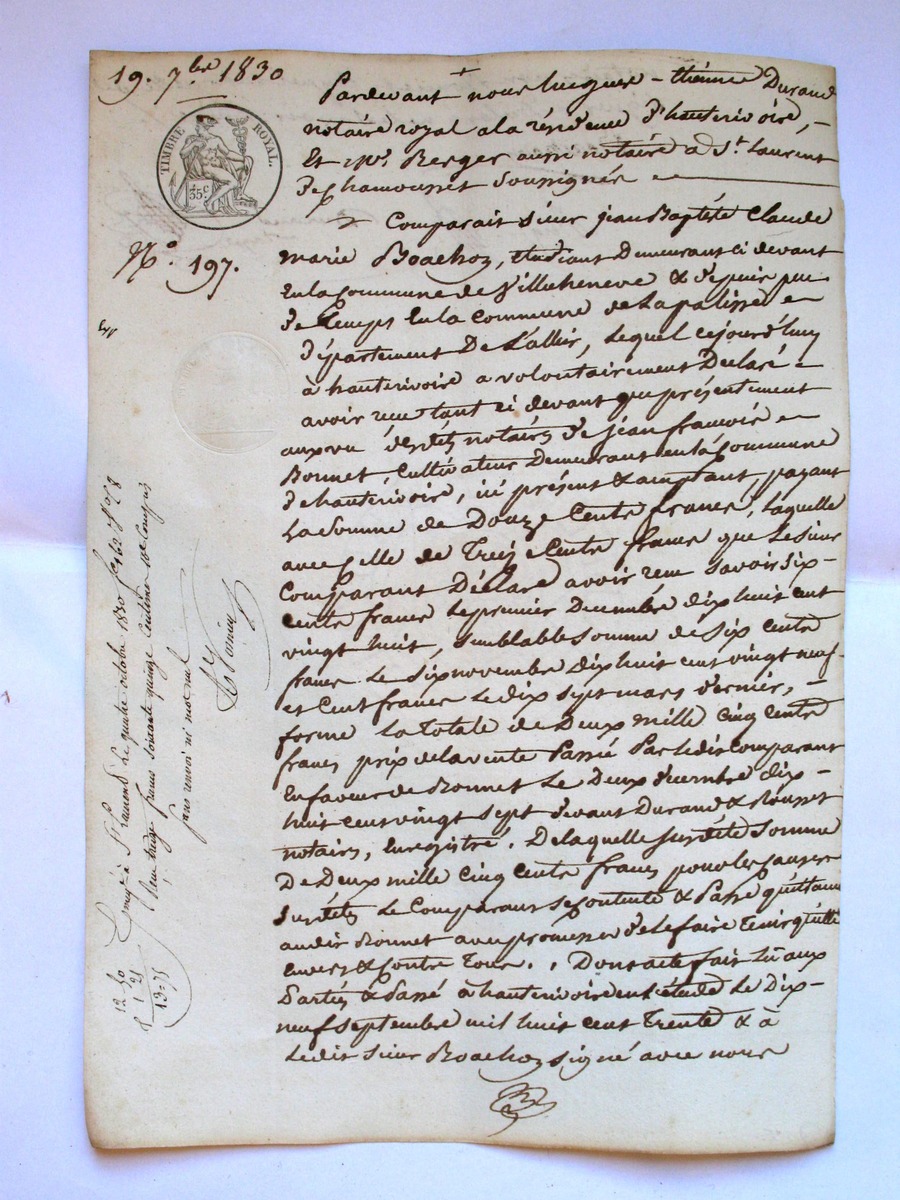 19. 7bre 1830
TIMBRE ROYAL.
35c
N.o 197.
Pardevant nous hugues - étienne Durand
notaire royal a la résidence d'hauterivoire, -
Et Me. Berger aussi notaire a St. Laurent
de chamousset soussignés
Comparait sieur jean Baptiste Claude
marie Boachon, étudiant Demeurant ci devant
En la Commune de Villecheneve & depuis peu
de temps En la Commune de Lapalisse
département De L'allier, Lequel cejourd'huy
à hauterivoire a volontairement Declaré
avoir reçu tant ci devant que présentement
aux vu desdits notaires de jean françois
Bonnet, Cultivateur Demeurant en la Commune
d'hauterivoire, ici présent & acceptant, payant
La Somme de Douze Cents francs, Laquelle
avec Celle de Treize Cents francs que Le sieur
Comparant Déclare avoir reçu savoir Six-
cents francs Le premier Decembre dix huit cent
vingt huit, semblable somme de Six Cents
francs Le six novembre dix huit cent vingt neuf
et Cent francs Le dix sept mars dernier, -
forme La totale de Deux mille Cinq Cents
francs prix de la vente Passée Par ledit Comparant
En faveur de Bonnet Le Deux décembre dix-
huit cent vingt sept devant Durand & Rousset
notaires, Enregistré. De laquelle susdite Somme
De Deux mille Cinq Cents francs pour les causes
susdites Le Comparant se Contente & Passe quittance
audit Bonnet avec promesse de le faire Tenir quitte
Envers & Contre Tous. Dont acte fait lu aux
Parties & Passé à hauterivoire en L'étude Le Dix-
neuf septembre mil huit cent Trente & à
Ledit Sieur Boachon signé avec nous
Enregé à St Laurent Le quatre octobre 1830
Reçu treize francs soixante quinze Centimes 10e Compris
sans renvoi ni mot nul
12 50
1 25
13-75